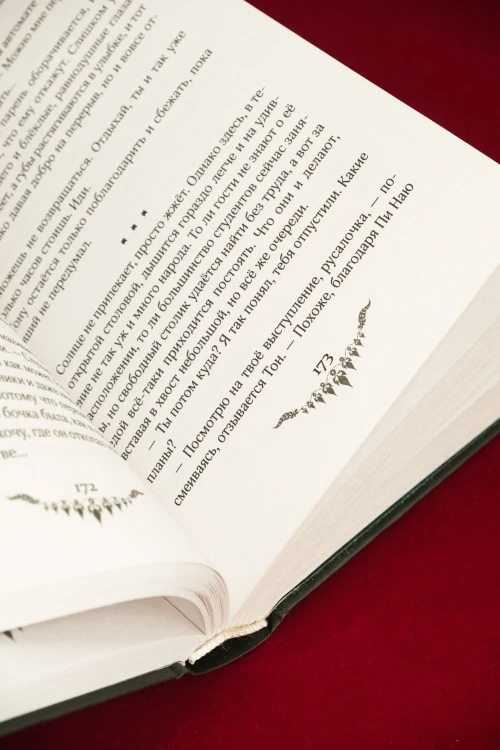 как мож
ники и даже
потому что
бочка была, как
хочу, где он
ве...
172
автомате
Можно мне
парень оборачивается,
что ему откажут. Слишком
и блёклые, равнодушные глаза
а губы растягиваются в улыбке, и тот
давая добро на перерыв, но и вовсе от-
можешь не возвращаться. Отдыхай, ты и так уже
столько часов стоишь. Иди.
остаётся только поблагодарить и сбежать, пока
не передумал.
* * *
Солнце не припекает, просто жжёт. Однако здесь, в те-
открытой столовой, дышится гораздо легче и на удив-
не так уж и много народа. То ли гости не знают о её
расположении, то ли большинство студентов сейчас заня-
ты, но свободный столик удаётся найти без труда, а вот за
едой всё-таки приходится постоять. Что они и делают,
вставая в хвост небольшой, но всё же очереди.
— Ты потом куда? Я так понял, тебя отпустили. Какие
планы?
— Посмотрю на твоё выступление, русалочка, — по-
смеиваясь, отзывается Тон. — Похоже, благодаря Пи Наю
173